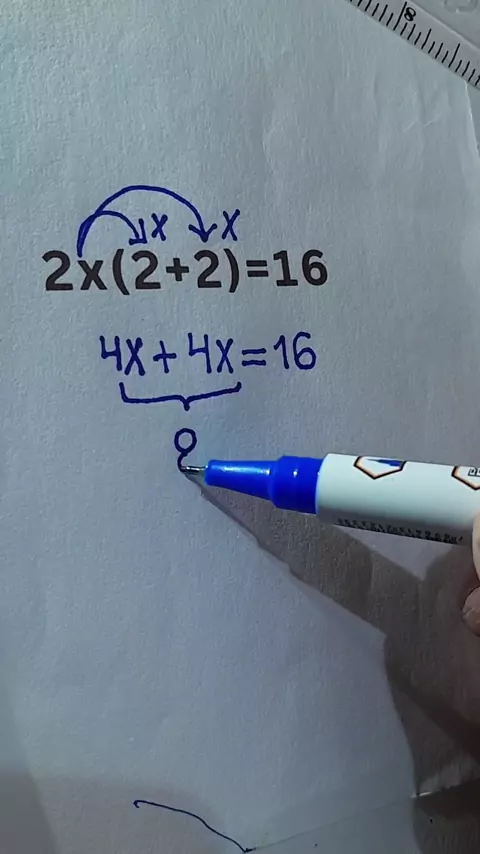 8
x x
2x(2+2)=16
4x+4x=16